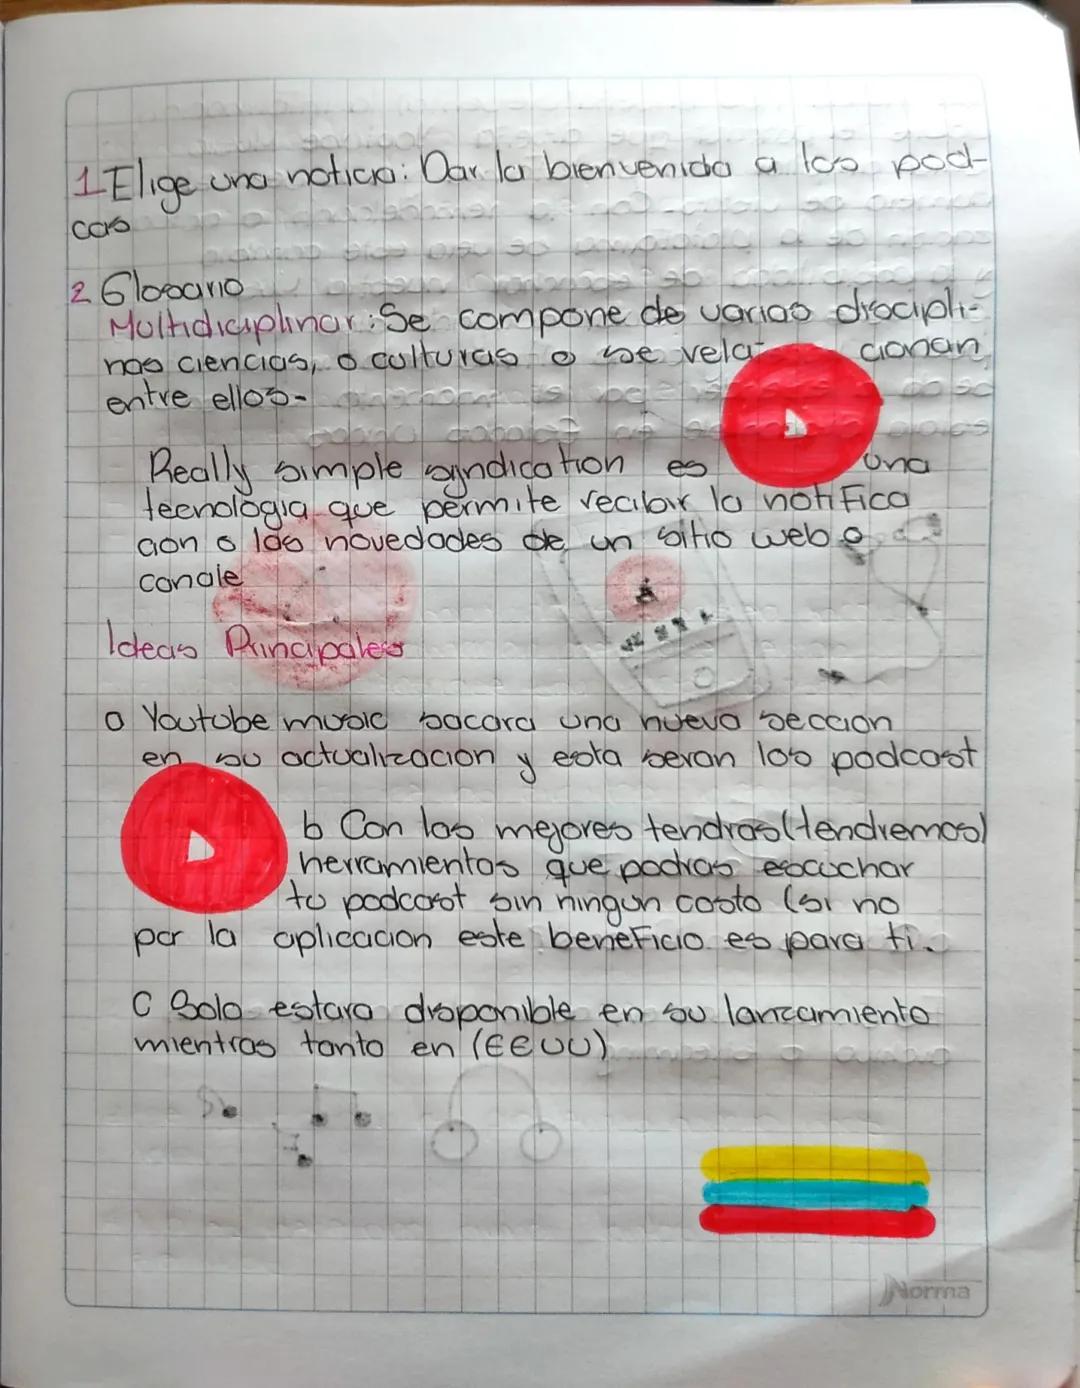 1 Elige una noticia: Dar la bienvenida a los pod-
cas
2 Glosario
Multidiciplinar: Se compone de varias discipli-
nas ciencias, o culturas o se rela- cionan
entre ellos-
Really simple syndication es una
tecnologia que permite recibir la notifica
cion o las novedades de un sitio web o
canale
Ideas Principales
a Youtube music sacara una nueva seccion
en su actualizacion y esta seran los podcast
b Con las mejores tendras (tendremos)
herramientas que podras escuchar
tu podcast sin ningun costo (si no
por la aplicacion este beneficio es para ti.
C Solo estara disponible en su lanzamiento
mientras tanto en (EEUU)
Norma